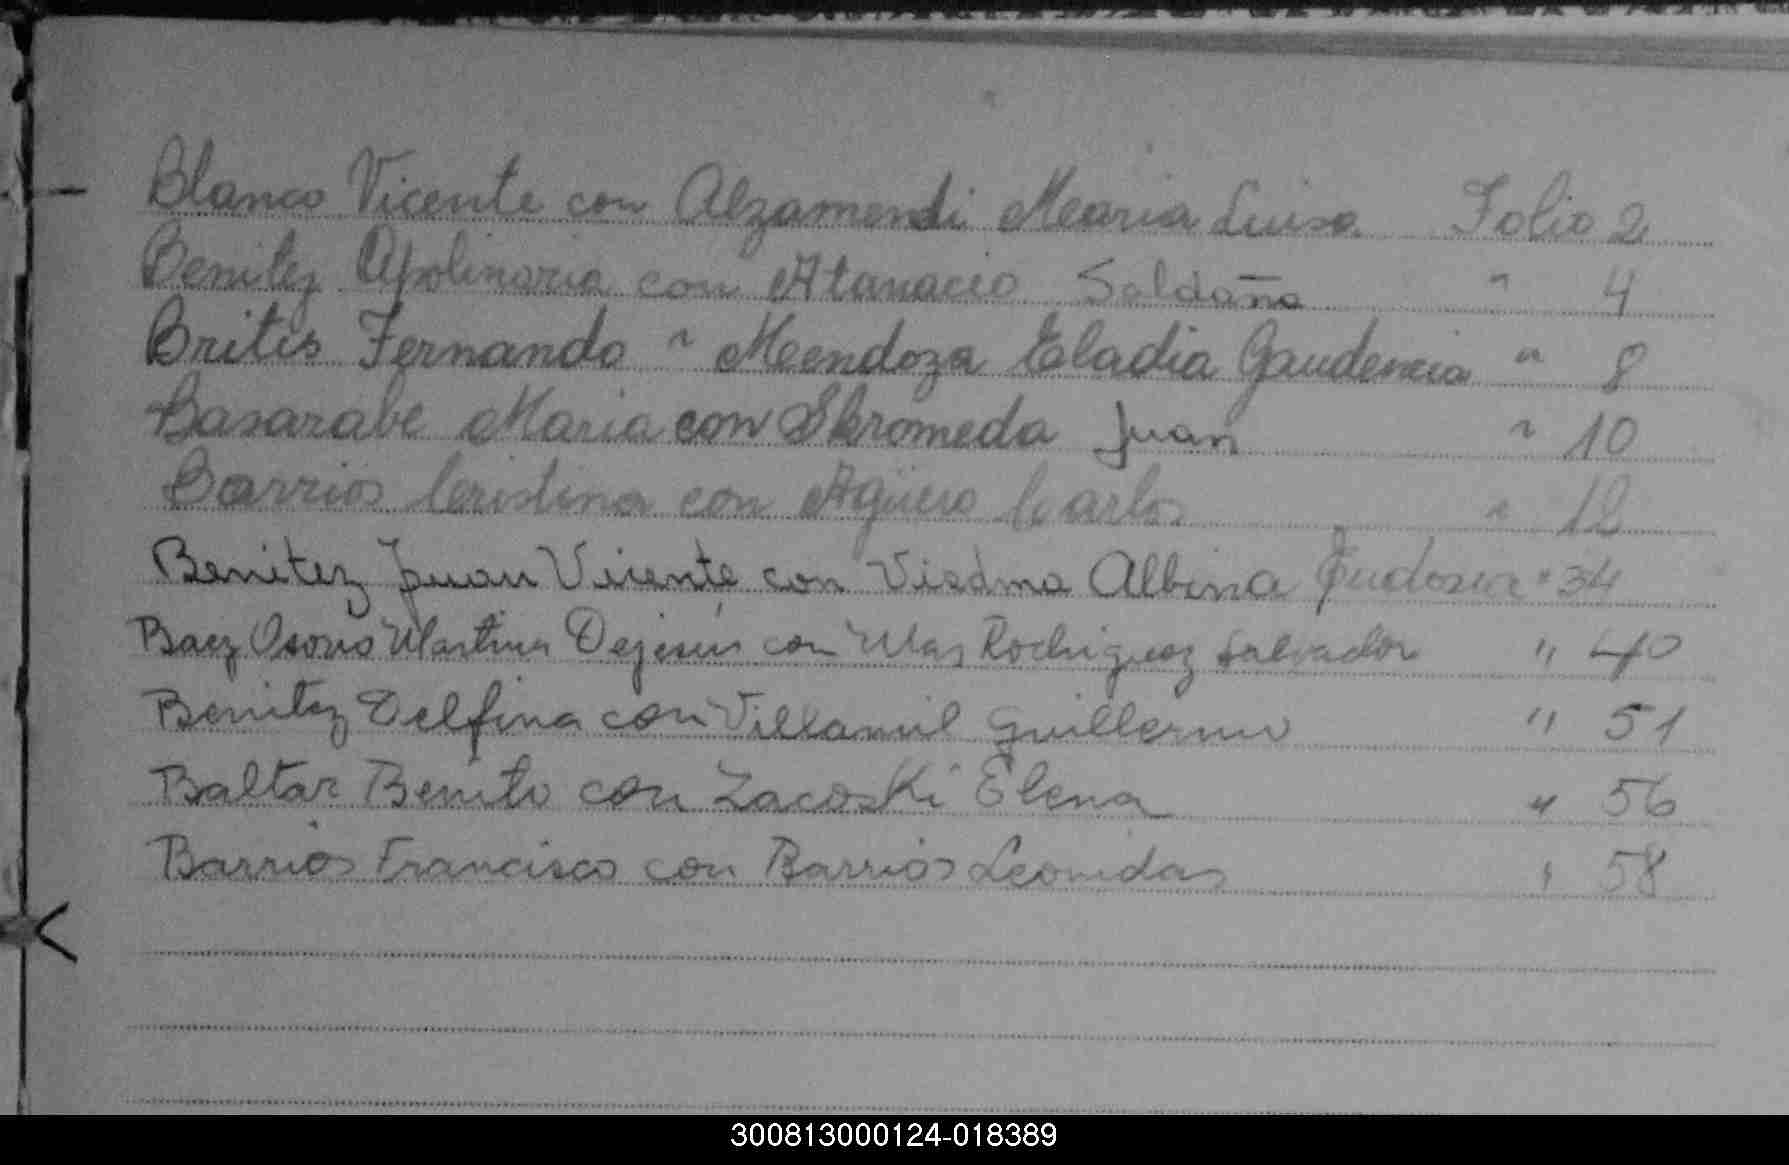 Blanco Vicente con Alzamendi Maria Luisa Folio 2
Benitez Apolinaria con Atanacio Saldaña " 4
Brites Fernando " Mendoza Eladia Gaudencia " 8
Basarabe Maria con Skromeda Juan " 10
Barrios Cristina con Agüero Carlos " 12
Benitez Juan Vicente con Viedma Albina Eudosia " 34
Baez Osorio Martina Dejesús con Mas Rodriguez Salvador " 40
Benitez Delfina con Villamil Guillermo " 51
Baltar Benito con Zacoski Elena " 56
Barrios Francisco con Barrios Leonidas " 58
300813000124-018389